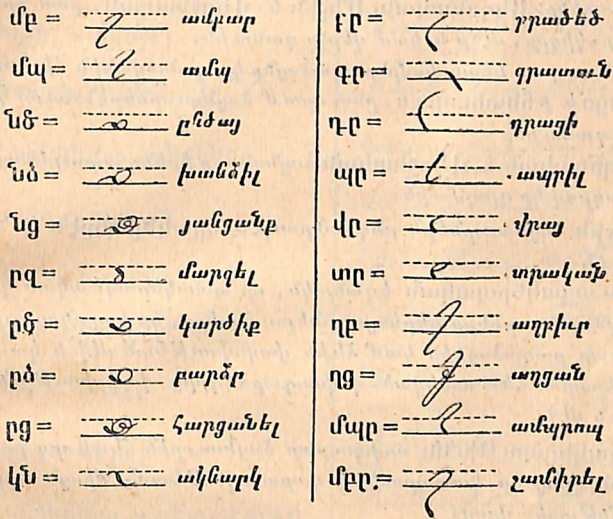 մբ = ամբար
մպ = ամպ
նծ = ընծայ
նձ = խանձիլ
նց = յանցանք
րզ = մարզել
րծ = կարծիք
րձ = բարձր
րց = հարցանել
կն = ակնարկ
բր = բրածեծ
գր = գրատուն
դր = դրացի
պր = ապրիլ
վր = վրայ
տր = տրական
ղբ = աղբիւր
ղց = աղցան
մպր = ամպրոպ
մբր. =